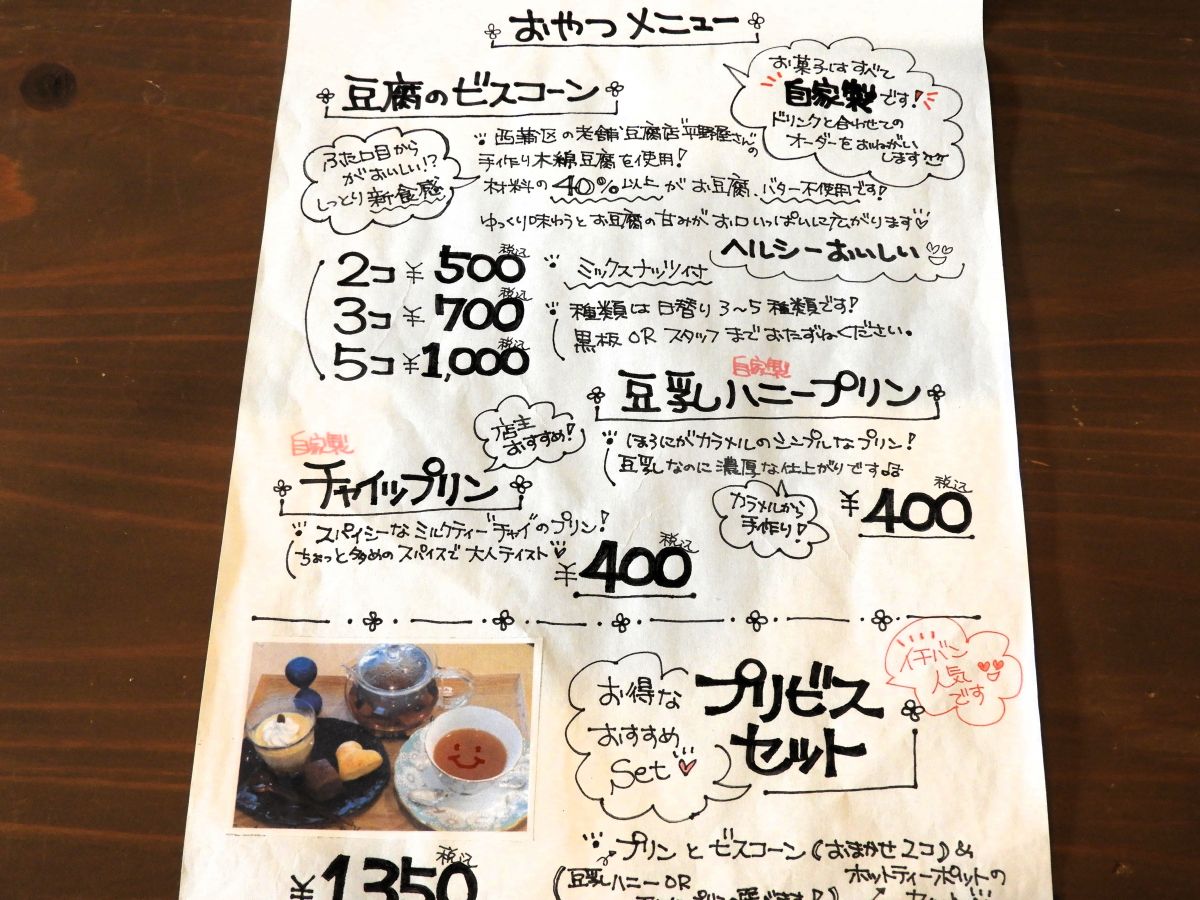 おやつメニュー
お菓子はすべて
自家製です!
ドリンクと合わせての
オーダーをおねがい
します
豆腐のビスコーン
ふた口目から
がおいしい!?
しっとり新食感
西蒲区の老舗豆腐店"平野屋さんの
手作り木綿豆腐を使用!
材料の40%以上がお豆腐、バター不使用です!
ゆっくり味わうとお豆腐の甘みがお口いっぱいに広がります
ヘルシーおいしい
2コ ¥500 税込
3コ ¥700 税込
5コ ¥1,000 税込
ミックスナッツ付
種類は日替り3〜5種類です!
黒板ORスタッフまでおたずねください。
自家製
豆乳ハニープリン
ほろにがカラメルのシンプルなプリン!
豆乳なのに濃厚な仕上がりです♫
カラメルから
手作り!
¥400 税込
店主
おすすめ!
自家製
チャイップリン
スパイシーなミルクティー"チャイ"のプリン!
ちょっと多めのスパイスで大人テイスト
¥400 税込
イチバン
人気
です
お得な
おすすめ
Set
プリビス
セット
¥1350 税込
プリンとビスコーン(おまかせ2コ)&
豆乳ハニーOR
ホットティーポットの